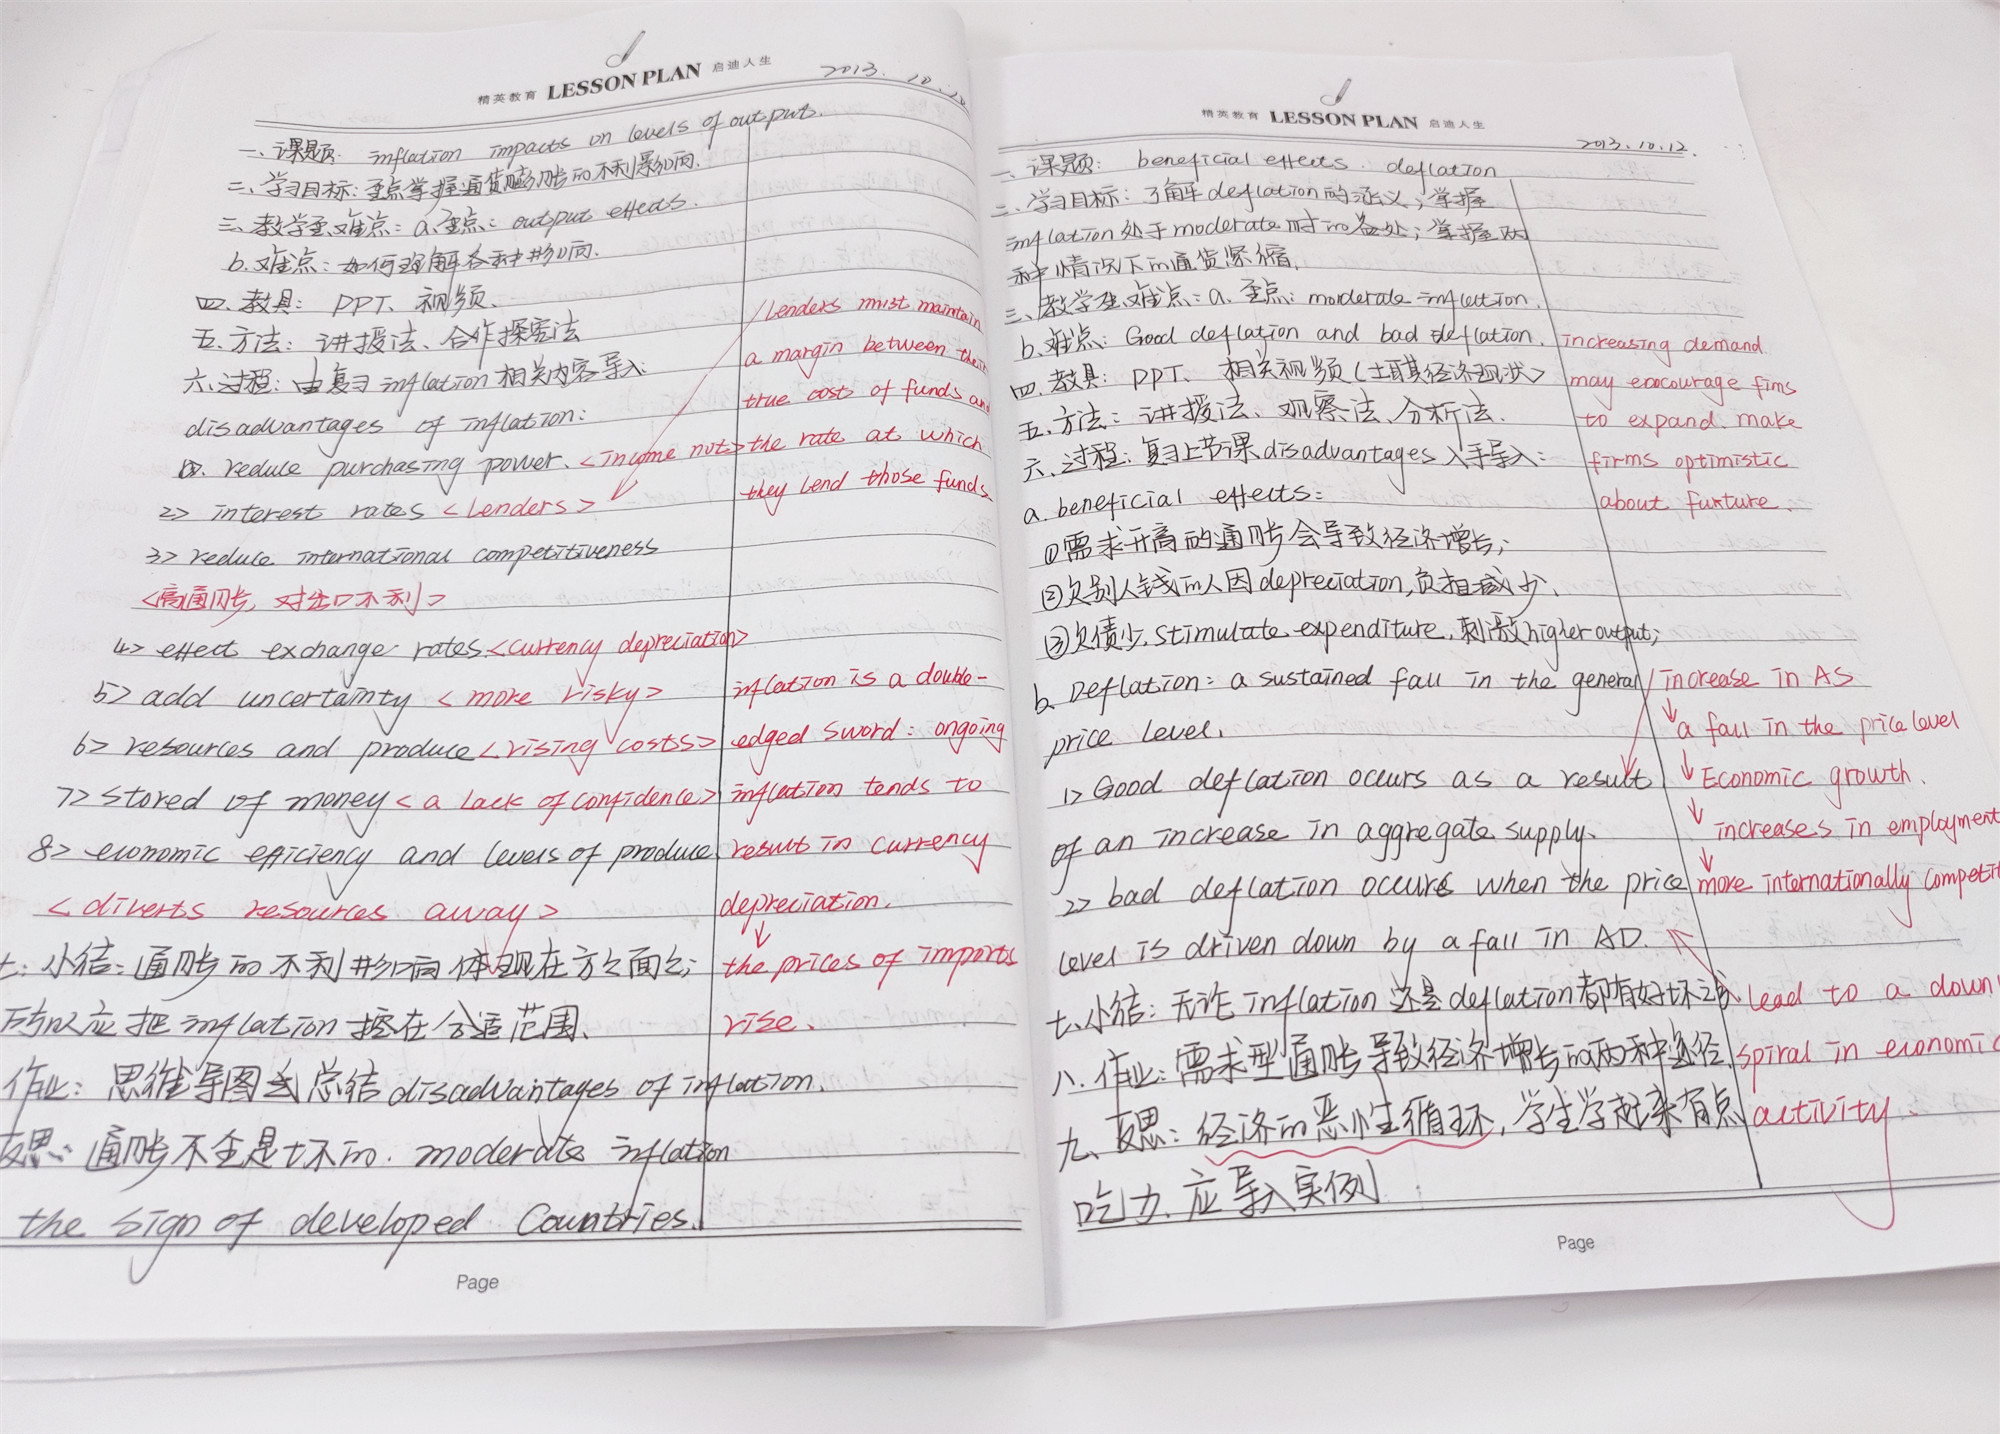 精英教育 LESSON PLAN 启迪人生
2013. 10.
一、课题: inflation impacts on levels of output.
二、学习目标: 重点掌握通货膨胀的不利影响.
三、教学重难点: a.重点: output effects.
b.难点: 如何理解各种影响.
四.教具: PPT、视频.
五.方法: 讲授法、合作探究法
六.过程: 由复习inflation相关内容导入:
disadvantages of inflation:
reduce purchasing power. <income not>
2> interest rates <lenders>
3> reduce international competitiveness
<高通胀, 对出口不利>
4> effect exchange rates.<currency depreciation>
5> add uncertainty <more risky>
6> resources and produce <rising costs>
7> stored of money <a lack of confidence>
8> economic efficiency and levels of produce
<diverts resources away>
七: 小结: 通胀的不利影响体现在方方面面;
所以应把inflation控在合适范围.
作业: 思维导图式总结disadvantages of inflation.
反思: 通胀不全是坏的. moderate inflation
the sign of developed countries.
/lenders must maintain
a margin between their
true costs of funds and
the rate at which
they lend those funds
inflation is a double-
edged sword: ongoing
inflation tends to
result in currency
depreciation.
↓
the prices of imports
rise.
Page
精英教育 LESSON PLAN 启迪人生
2013.10.12.
一、课题: beneficial effects. deflation
二、学习目标: 了解deflation的涵义; 掌握
inflation处于moderate时的益处; 掌握两
种情况下的通货紧缩.
三、教学重难点: a.重点: morderate inflation.
b.难点: Good deflation and bad deflation.
四.教具: PPT、相关视频(土耳其经济现状>
五.方法: 讲授法、观察法、分析法.
六、过程: 复习上节课disadvantages入手导入:
a. beneficial effects:
①需求升高的通胀会导致经济增长;
②欠别人钱的人因depreciation,负担减少.
③欠债少.stimulate expenditure.刺激higher output;
b. Deflation: a sustained fall in the general
price level.
1> Good deflation occurs as a result
of an increase in aggregate supply.
2> bad deflation occurs when the price
level is driven down by a fall in AD.
七、小结: 无论inflation还是deflation都有好坏之
八.作业: 需求型通胀导致经济增长的两种途径.
九、反思: 经济的恶性循环, 学生学起来有点
吃力.应导入实例
increasing demand
may enocourage fims
to expand. make
firms optimistic
about furture.
/increase in AS
↓a fall in the price level
↓Economic growth.
↓increases in employment
↓more internationally
lead to a down
spiral in economic
activity.
Page